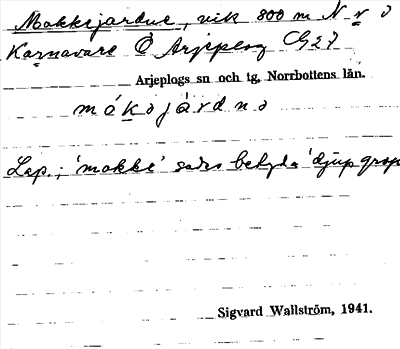 Makkejardne, vik 800 m N v o
Karnavare Ö Arjeplog G27
Arjeplogs sn och tg, Norrbottens län.
mákəjárdnə
Lap.; 'makke' sades betyda 'djup grop
Sigvard Wallström, 1941.